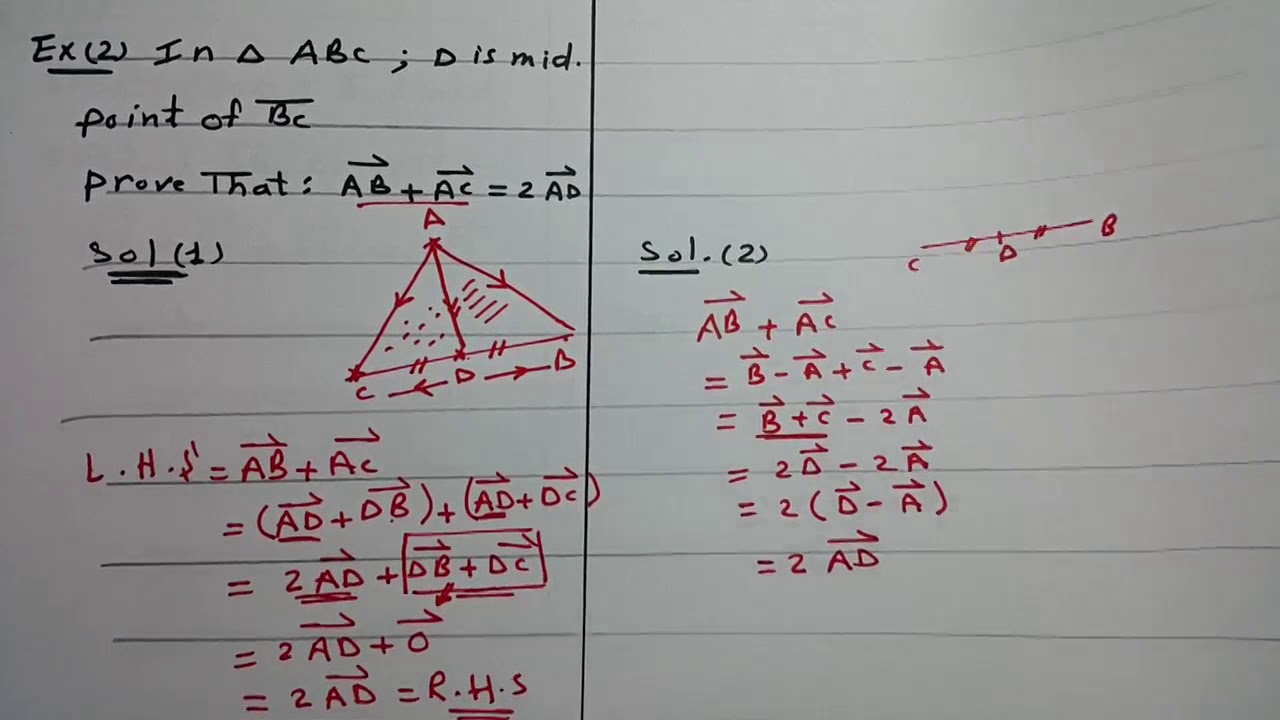 Ex(2) In Δ ABC ; D is mid.
point of B̅C̅
prove That: A⃗B⃗ + A⃗C⃗ = 2 A⃗D⃗
Sol(1)
A
C D B
L.H.S = A⃗B⃗ + A⃗C⃗
= (A⃗D⃗ + D⃗B⃗) + (A⃗D⃗ + D⃗C⃗)
= 2 A⃗D⃗ + D⃗B⃗ + D⃗C⃗
= 2 A⃗D⃗ + 0⃗
= 2 A⃗D⃗ = R.H.S
Sol.(2)
C D B
A⃗B⃗ + A⃗C⃗
= B⃗ - A⃗ + C⃗ - A⃗
= B⃗ + C⃗ - 2 A⃗
= 2 D⃗ - 2 A⃗
= 2 ( D⃗ - A⃗ )
= 2 A⃗D⃗